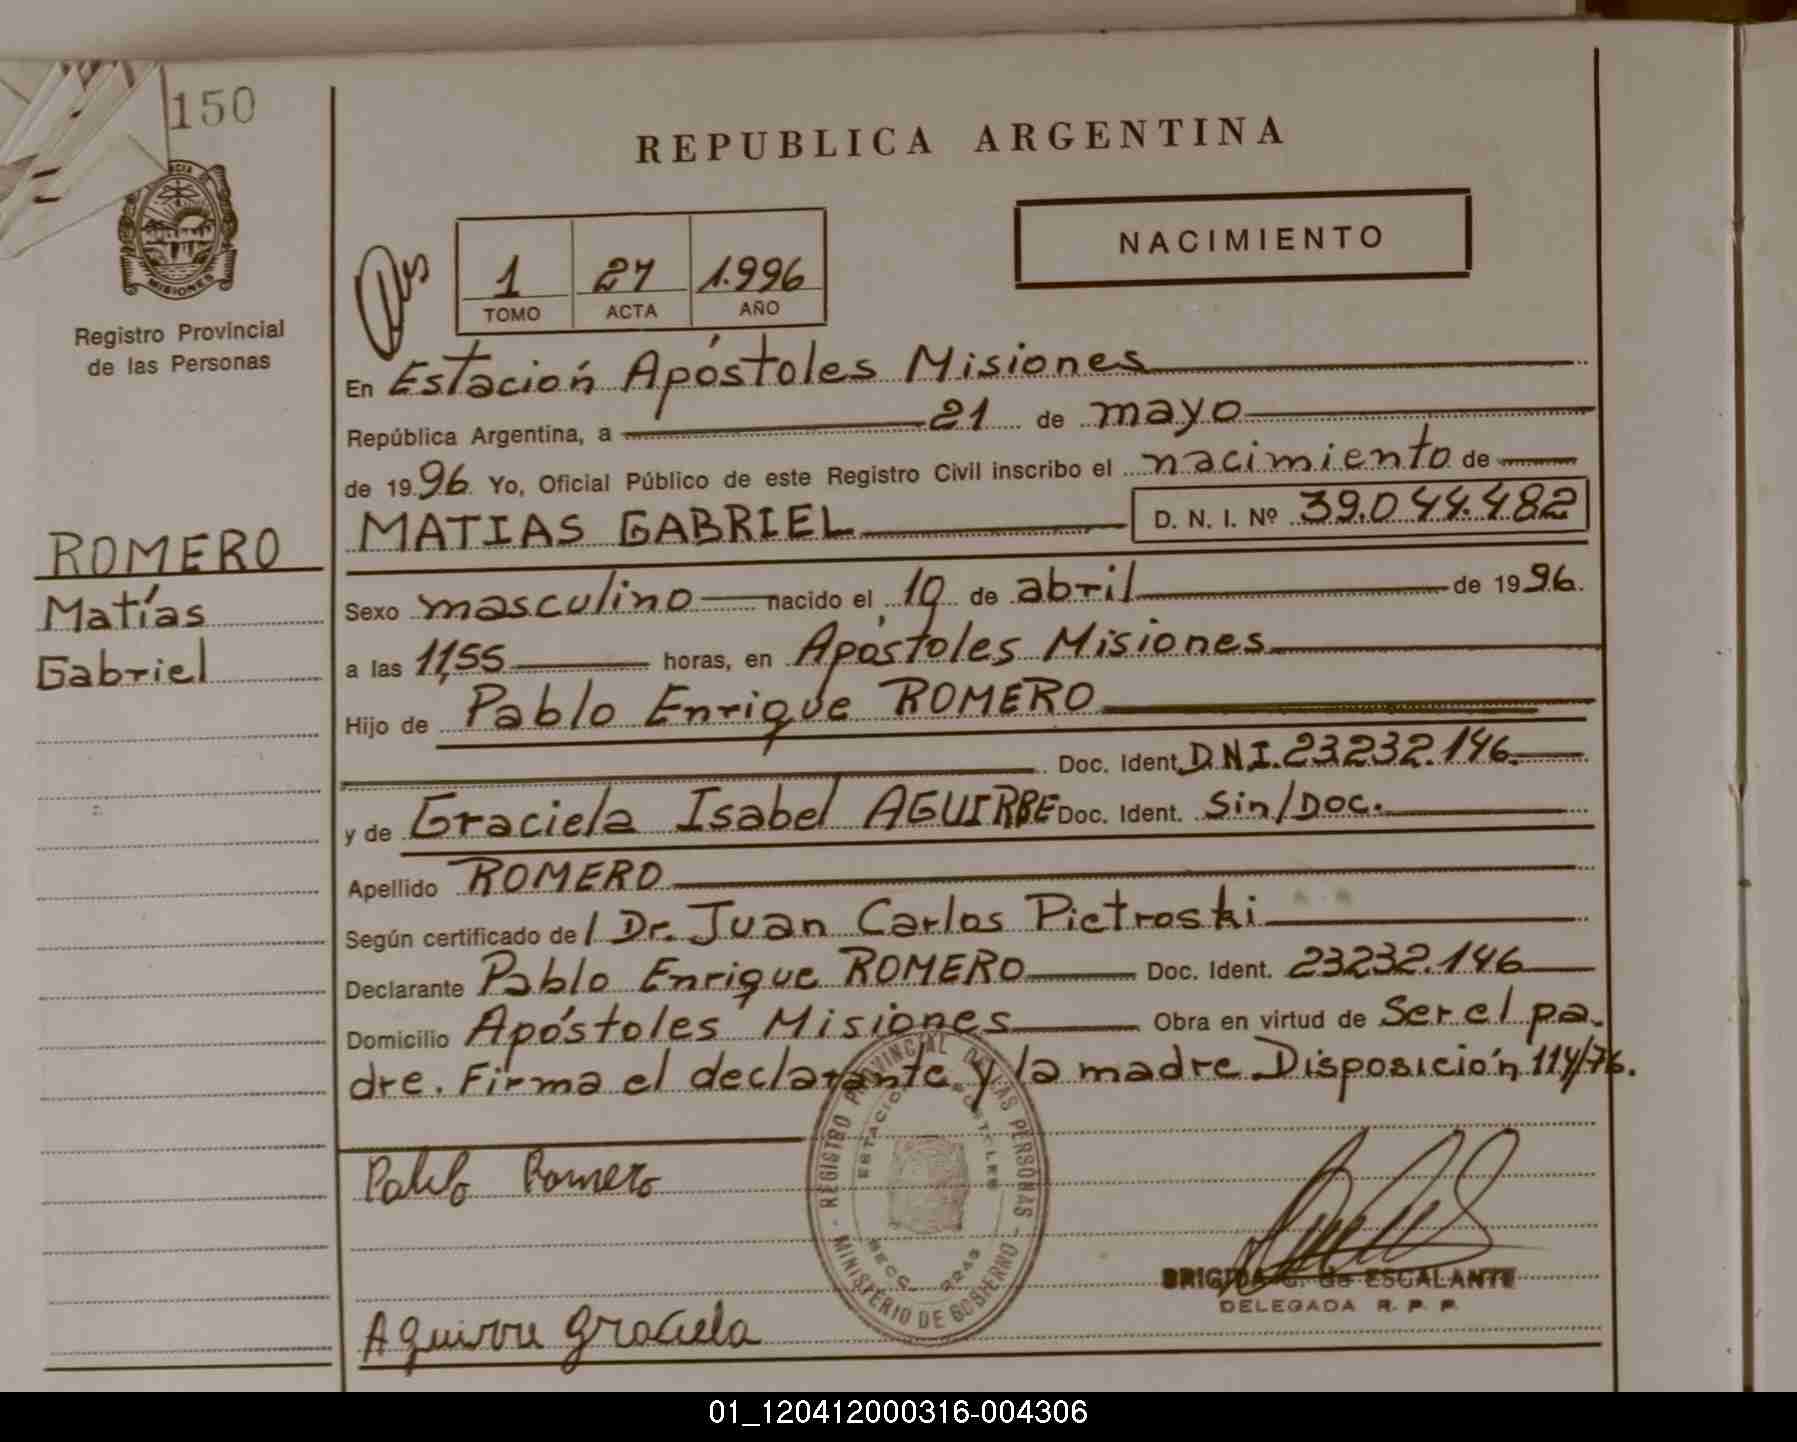 150
REPUBLICA ARGENTINA
NACIMIENTO
1 27 1.996
TOMO ACTA AÑO
MISIONES
Registro Provincial
de las Personas
En Estación Apóstoles Misiones
República Argentina, a 21 de mayo
de 1996 Yo, Oficial Público de este Registro Civil inscribo el nacimiento de
MATIAS GABRIEL D. N. I. Nº 39.044.482
ROMERO
Matías
Gabriel
Sexo masculino nacido el 10 de abril de 1996.
a las 11,55 horas, en Apóstoles Misiones
Hijo de Pablo Enrique ROMERO
Doc. Ident. D.N.I. 23232.146.
y de Graciela Isabel AGUIRRE Doc. Ident. Sin/Doc.
Apellido ROMERO
Según certificado de / Dr. Juan Carlos Pietroski
Declarante Pablo Enrique ROMERO Doc. Ident. 23232.146
Domicilio Apóstoles Misiones Obra en virtud de Ser el pa-
dre. Firma el declarante y la madre Disposición 114/76.
REGISTRO PROVINCIAL DE LAS PERSONAS
MINISTERIO DE GOBIERNO
Pablo Romero
BRIGIDA C. de ESCALANTE
DELEGADA R. P. P.
Aguirre Graciela
01_120412000316-004306